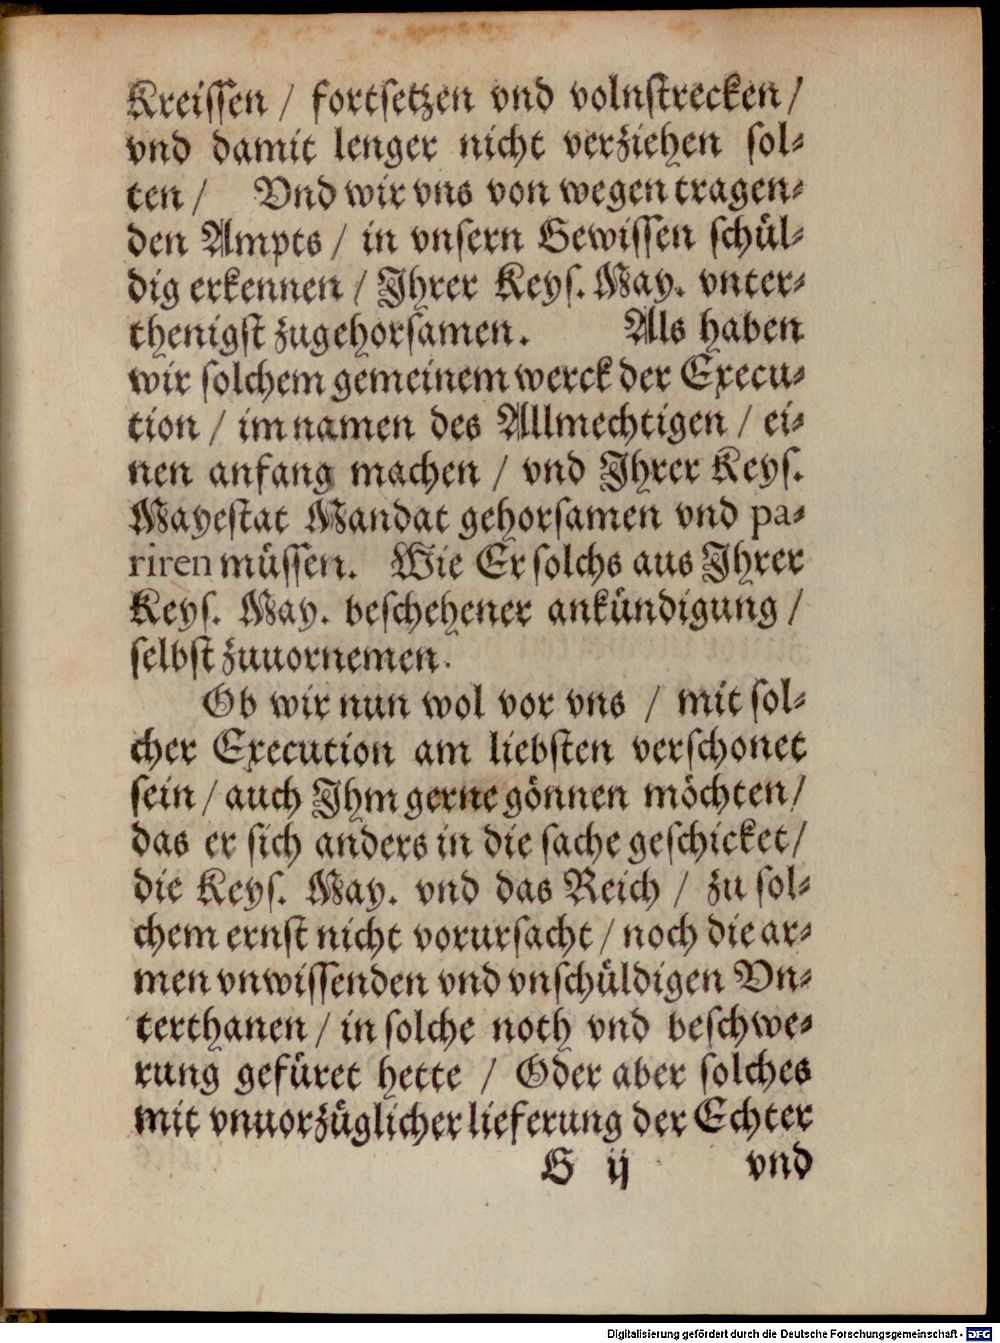 Kreissen / fortsetzen vnd volnstrecken /
vnd damit lenger nicht verziehen sol-
ten / Vnd wir vns von wegen tragen-
den Ampts / in vnsern Gewissen schül-
dig erkennen / Ihrer Keys. May. vnter-
thenigst zugehorsamen. Als haben
wir solchem gemeinem werck der Execu-
tion / im namen des Allmechtigen / ei-
nen anfang machen / vnd Ihrer Keys.
Mayestat Mandat gehorsamen vnd pa-
riren müssen. Wie Er solchs aus Ihrer
Keys. May. beschehener ankündigung /
selbst zuuornemen.
Ob wir nun wol vor vns / mit sol-
cher Execution am liebsten verschonet
sein / auch Ihm gerne gönnen möchten /
das er sich anders in die sache geschicket /
die Keys. May. vnd das Reich / zu sol-
chem ernst nicht vorursacht / noch die ar-
men vnwissenden vnd vnschüldigen Vn-
terthanen / in solche noth vnd beschwe-
rung gefüret hette / Oder aber solches
mit vnuorzüglicher lieferung der Echter
G ij vnd
Digitalisierung gefördert durch die Deutsche Forschungsgemeinschaft - DFG